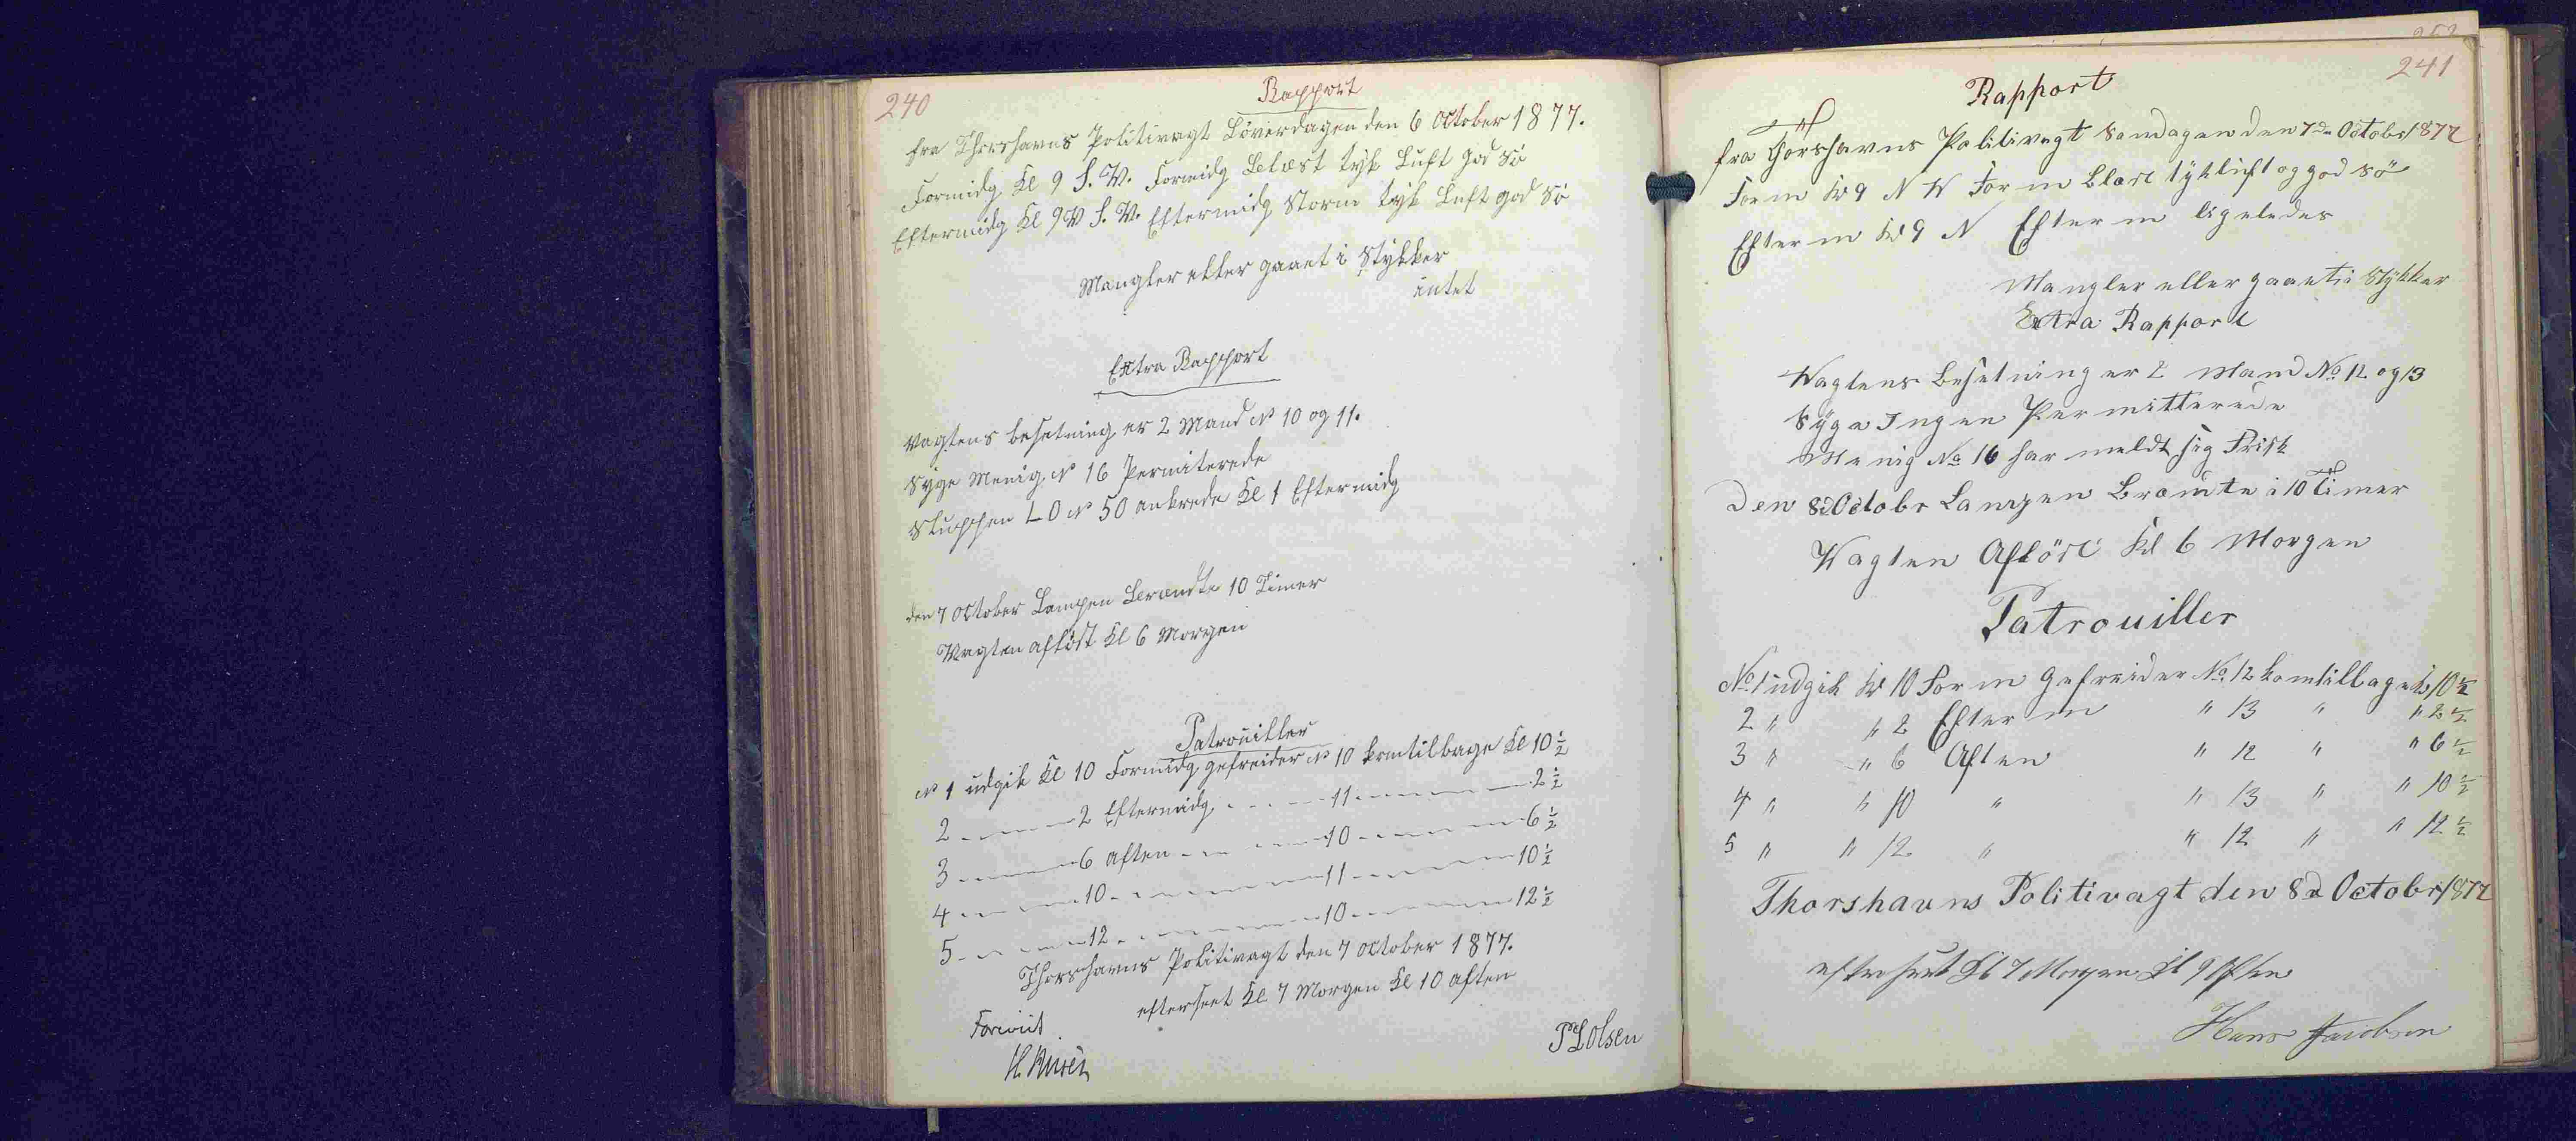 240
Rapport
fra Thorshavns Politivagt Löverdagen den 6 October 1877.
Formidg Kl 9 S.V. Formidg Blæst tyk Luft god Sö
Eftermidg Kl 9 V S.V. Eftermidg Storm tyk Luft god Sö
Mangler eller gaaet i Stykker
intet
Extra Rapport
Vagtens besetning er 2 Mand No 10 og 11.
Syge Menig No 16 Permiterede
Sluppen L O No 50 ankrede Kl 1 Eftermidg
den 7 October Lampen Brændte 10 Timer
Vagten aflöst Kl 6 Morgen
Patrouiller
No 1 udgik Kl 10 Formidg gefreider No 10 kom tilbage Kl 10 1/2
2 2 Eftermidg 11 2 1/2
3 6 aften 10 6 1/2
4 10 11 10 1/2
5 12 10 12 1/2
Thorshavns Politivagt den 7 October 1877.
efterseet Kl 7 Morgen Kl 10 aften
Foreviist
P L Olsen
241
Rapport
fra Thorshavns Politivagt Söndagen den 7de Octobr 1877
Form Kl 9 N W Form Blæst tyk luft og god Sö
Efterm Kl 9 N Efterm ligeledes
Mangler eller gaaet i Stykker
Extra Rapport
Vagtens Besetning er 2 Mand No 12 og 13
Syge Ingen Permitterede
Menig No 16 har meldt sig Frisk
Den 8d Octobr Lampen Brændte i 10 Timer
Vagten Aflöst Kl 6 Morgen
Patrouiller
No 1 udgik Kl 10 Form Gefreider No 12 kom tilbage Kl 10 1/2
2 " " 2 Efterm " 13 " " 2 1/2
3 " " 6 Aften " 12 " " 6 1/2
4 " " 10 " " 13 " " 10 1/2
5 " " 12 " " 12 " " 12 1/2
Thorshavns Politivagt den 8d Octobr 1877
efterseet Kl 7 Morgen Kl 9 Aften
Hans Jacobsen